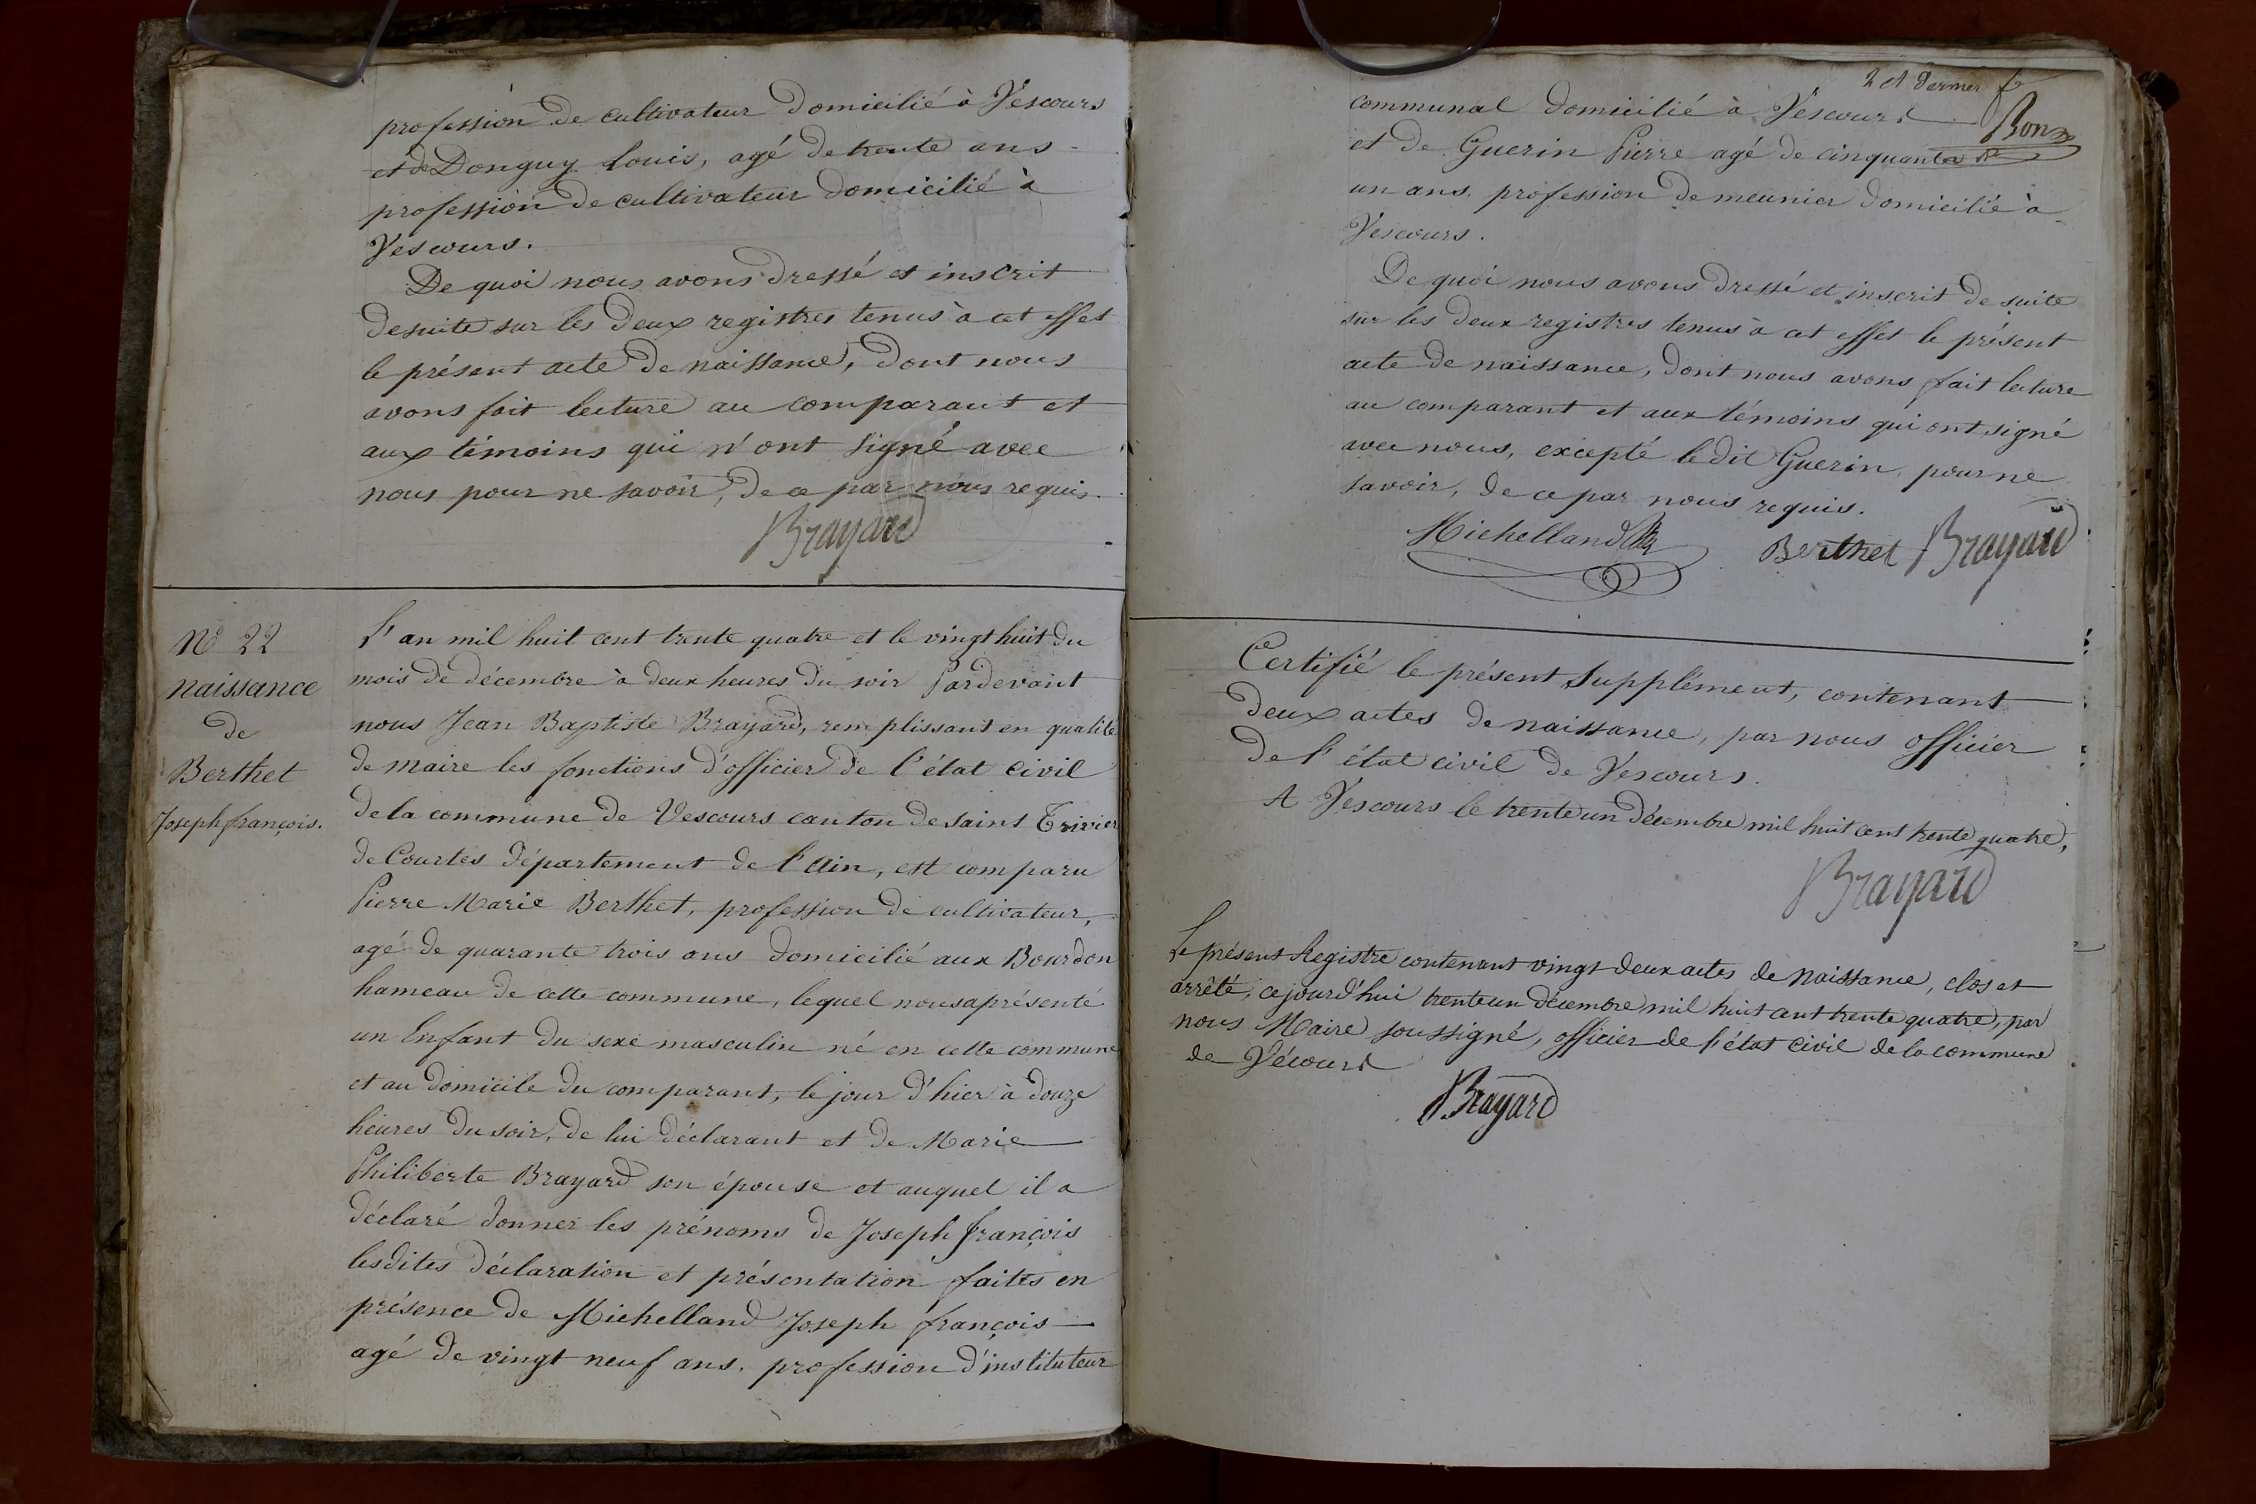 profession de cultivateur domicilié à Vescours
et de Donguy Louis, agé de trente ans
profession de cultivateur domicilié à
Vescours.
De quoi nous avons dressé et inscrit
desuite sur les deux registres tenus à cet effet
le présent acte de naissance, dont nous
avons fait lecture au comparant et
aux témoins qui n'ont signé avec
nous pour ne savoir, de ce par nous requis.
Brayard
No 22
naissance
de
Berthet
Joseph françois.
L'an mil huit cent trente quatre et le vingt huit du
mois de décembre à deux heures du soir Pardevant
nous Jean Baptiste Brayard, remplissant en qualité
de maire les fonctions d'officier de l'état civil
de la commune de Vescours canton de saint Trivier
de Courtes département de l'Ain, est comparu
Pierre Marie Berthet, profession de cultivateur,
agé de quarante trois ans domicilié aux Bourdon
hameau de cette commune, lequel nous a présenté
un Enfant du sexe masculin né en cette commune
et au domicile du comparant, le jour d'hier à douze
heures du soir, de lui déclarant et de Marie
Philiberte Brayard son épouse et auquel il a
déclaré donner les prénoms de Joseph françois
lesdites déclaration et présentation faites en
présence de Michelland Joseph françois
agé de vingt neuf ans, profession d'instituteur
2 et dernier f
Bon
communal domicilié à Vescours
et de Guerin Pierre agé de cinquante
un ans, profession de meunier domicilié à
Vescours.
De quoi nous avons dressé et inscrit de suite
sur les deux registres tenus à cet effet le présent
acte de naissance, dont nous avons fait lecture
au comparant et aux témoins qui ont signé
avec nous, excepté ledit Guerin, pour ne
savoir, de ce par nous requis.
Michelland Berthet Brayard
Certifié le présent Supplément, contenant
deux actes de naissance, par nous officier
de l'état civil de Vescours.
A Vescours le trente un décembre mil huit cent trente quatre,
Brayard
Le présent Registre contenant vingt deux actes de Naissance, clos et
arrêté, cejourd'hui trente un décembre mil huit cent trente quatre, par
nous Maire soussigné, officier de l'état civil de la commune
de Vécours
Brayard